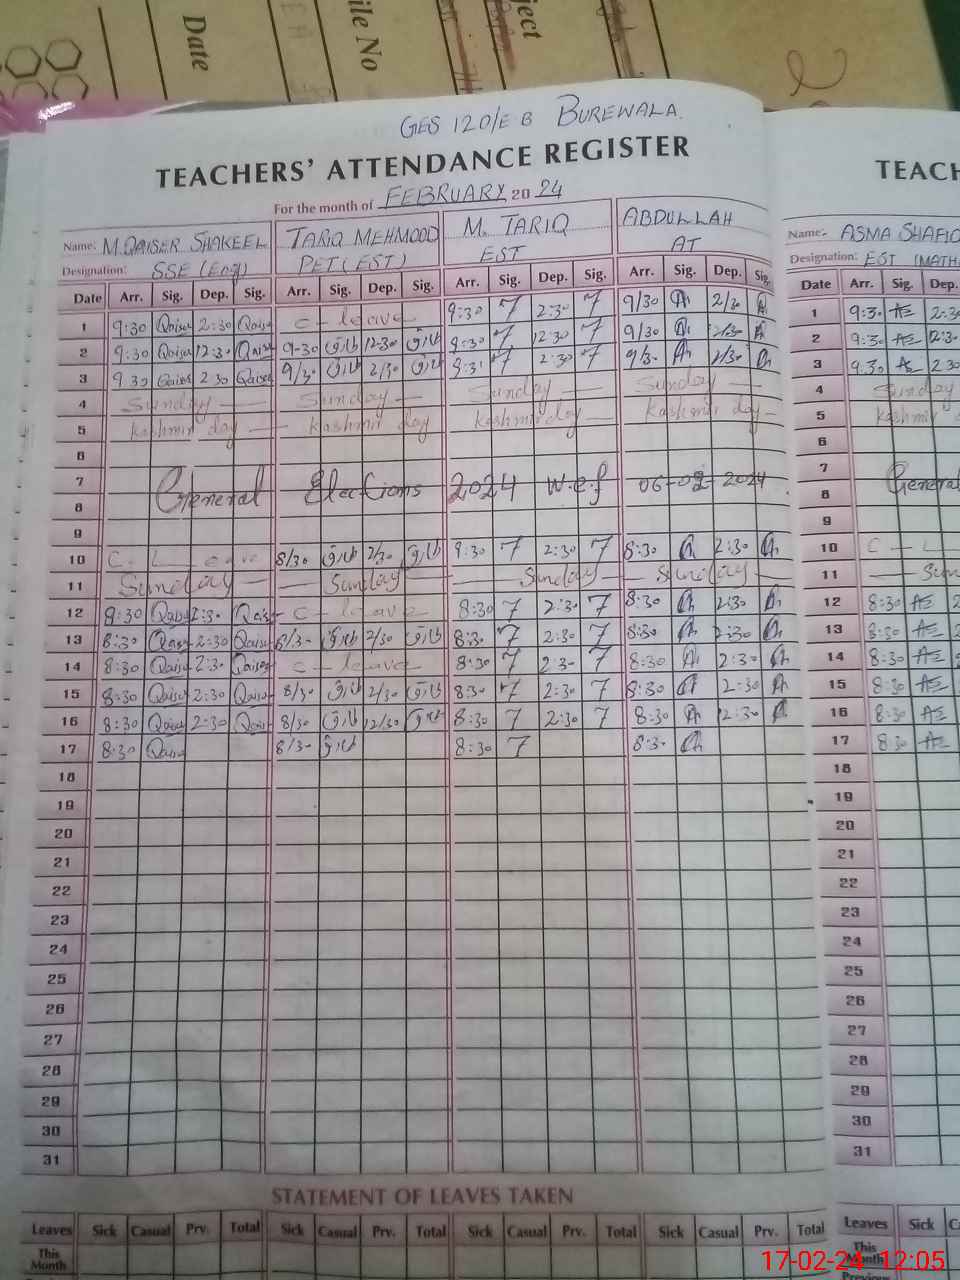 Date
File No
ject
GES 120/E B BUREWALA.
TEACHERS' ATTENDANCE REGISTER
For the month of FEBRUARY 2024
Name: M.QAISER SHAKEEL TARIQ MEHMOOD M. TARIQ ABDULLAH
Designation: SSE (Eng) PET (EST) EST AT
Date Arr. Sig. Dep. Sig. Arr. Sig. Dep. Sig. Arr. Sig. Dep. Sig. Arr. Sig. Dep. Sig.
1 9:30 Qaiser 2:30 Qaiser C-leave 9:30 7 2:30 7 9/30 2/30
2 9:30 Qaiser 12:30 Qaiser 9-30 طارق 12-30 طارق 9:30 7 12:30 7 9/30 12/30
3 9.30 Qaiser 2.30 Qaiser 9/30 طارق 2/30 طارق 9:30 7 2:30 7 9/30 2/30
4 Sunday — Sunday — Sunday — Sunday —
5 Kashmir day — Kashmir day Kashmir day — Kashmir day —
6
7 General Elections 2024 w.e.f 06-02-2024
8
9
10 C-Leave 8/30 طارق 2/30 طارق 9:30 7 2:30 7 8:30 2:30
11 Sunday — Sunday — Sunday — Sunday —
12 8:30 Qaiser 2:30 Qaiser C-leave 8:30 7 2:30 7 8:30 2:30
13 8:30 Qaiser 2:30 Qaiser 8/30 طارق 2/30 طارق 8:30 7 2:30 7 8:30 2:30
14 8:30 Qaiser 2:30 Qaiser C-leave 8:30 7 2:30 7 8:30 2:30
15 8:30 Qaiser 2:30 Qaiser 8/30 طارق 2/30 طارق 8:30 7 2:30 7 8:30 2:30
16 8:30 Qaiser 2:30 Qaiser 8/30 طارق 12/30 طارق 8:30 7 2:30 7 8:30 12:30
17 8:30 Qaiser 8/30 طارق 8:30 7 8:30
18
19
20
21
22
23
24
25
26
27
28
29
30
31
STATEMENT OF LEAVES TAKEN
Leaves Sick Casual Prv. Total Sick Casual Prv. Total Sick Casual Prv. Total Sick Casual Prv. Total
This
Month
TEACH
Name:- ASMA SHAFIQ
Designation: EST (MATH
Date Arr. Sig. Dep.
1 9:30 AS 2:30
2 9:30 AS 12:30
3 9.30 AS 2 30
4 Sunday
5 Kashmir
6
7
8 General
9
10 C-L
11 — Sun
12 8:30 AS
13 8:30 AS
14 8:30 AS
15 8:30 AS
16 8:30 AS
17 8:30 AS
18
19
20
21
22
23
24
25
26
27
28
29
30
31
Leaves Sick
This
Month
17-02-24 12:05